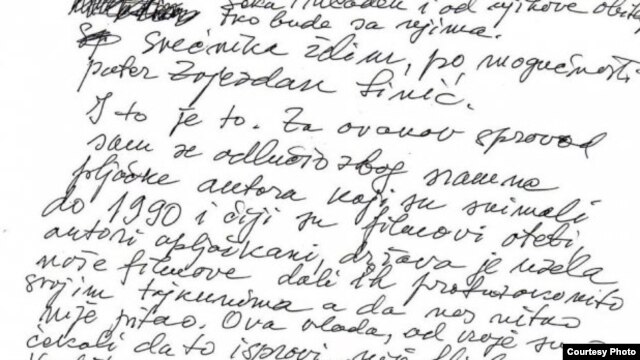 Joka i Mladen i od njihove obit
tko bude sa njima.
Svećnika želim, po mogućnosti
pater Zvjezdan Linić.
I to je to. Za ovakav sprovod
sam se odlučio zbog sramne
pljačke autora koji su snimali
do 1990 i čiji su filmovi oteti,
autori opljačkani, država je uzela
naše filmove dali ih protuzakonito
svojim tajkunima a da nas nitko
nije pitao. Ova vlada, od koje smo
čekali da to ispravi
Courtesy Photo